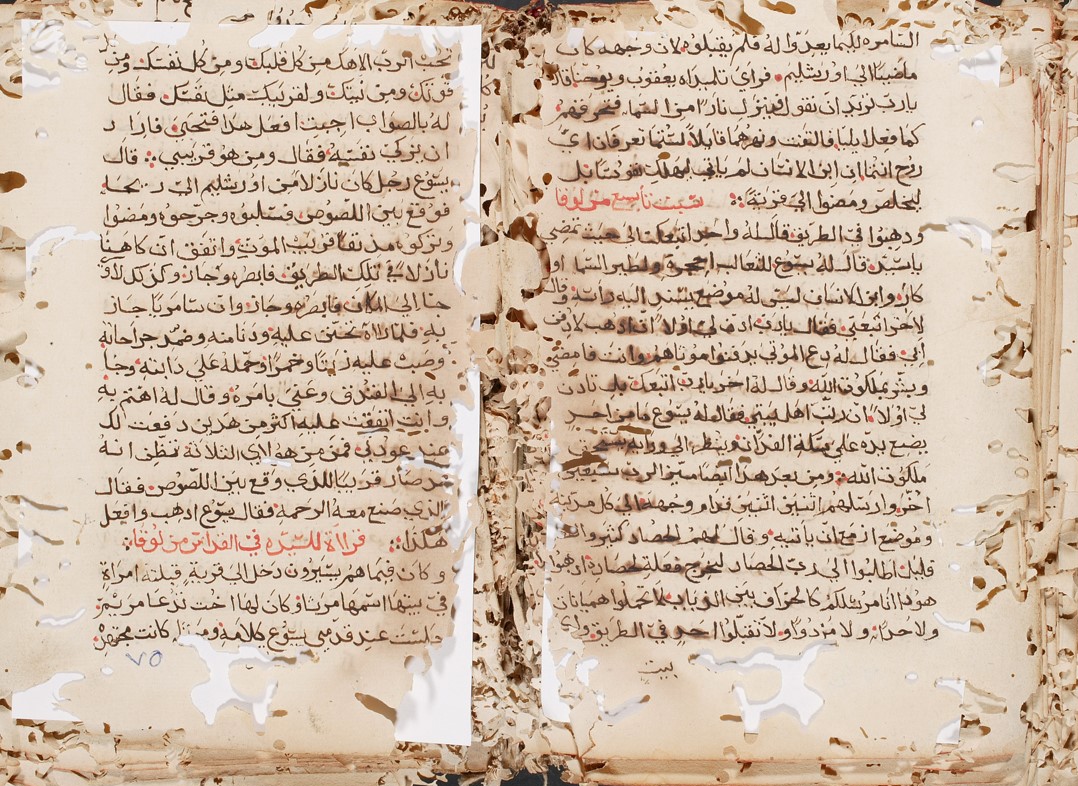 السامره لليما يعدوا له فلم يقبلوه لان وجهه كان
ماضيا الى اورشليم فراى تلميذاه يعقوب ويوحنا قالا
يارب تريد ان نقول فينزل نارا من السما فتحرقهم
كما فعل ايليا فالتفت ونهرهما قايلا لستما تعرفان اي
روح انتما ان ابن الانسان لم يات ليهلك نفوسا بل
ليخلص ومضوا الى قرية
سبت تاسع من لوقا
ودهبوا في الطريق قال له واحد اتبعك الى حيث تمضي
ياسيد قال له يسوع للثعالب اجحره ولطير السما او
كار وابن الانسان ليس له موضع يسند اليه راسه وقال
لاخر اتبعني فقال يارب ادن لي اولا ان ادهب لادفن
ابي فقال له دع الموتى يدفنوا موتاهم وانت فامضي
وبشر بملكوت الله وقال له اخر يارب اتبعك بل تادن
لي اولا ان ارتب اهل بيتي فقال له يسوع ما من احد
يضع يده على سكة الفدان وينظر الى ورايه يستحق
ملكوت الله ومن بعد هدا ايضا ميز الرب سبعين
اخر وارسلهم اتنين اتنين قدام وجهه الى كل مدينه
وموضع ازمع ان ياتيه وقال لهم الحصاد كثير والفعله
قليل اطلبوا الى رب الحصاد ليخرج فعلة لحصاده ادهبوا
هودا انا مرسلكم كالخراف بين الدياب لا تحملوا هميانا
ولا حدا ولا مزودا ولا تقبلوا احد في الطريق واي
بيت
تحب الرب الاهك من كل قلبك ومن كل نفسك ومن
قوتك ومن نيتك ولقريبك مثل نفسك فقال
له بالصواب اجبت افعل هدا فتحيى فاراد
ان يزكي نفسه فقال ومن هو قريبي قال
يسوع رجل كان نازلا من اورشليم الى ريحا
فوقع بين اللصوص فسلبوه وجرحوه ومضوا
وتركوه مدنفا قريب الموت واتفق ان كاهنا
نازلا في تلك الطريق فابصره وجاز وكدلك لاوي
جا الى المكان فابصره وجاز وان سامريا جاز
به فلما راه تحنن عليه ودنا منه وضمد جراحاته
وصب عليه زيتا وخمرا وحمله على دابته وجا
به الى الفندق وعني بامره وقال له اهتم به
وان انفقت عليه اكثر من هدين دفعت لك
عند عودتي فمن من هولاي الثلاثة تظن انه
قد صار قريبا للدي وقع بين اللصوص فقال
الدي صنع معه الرحمه فقال يسوع ادهب وافعل
هكدا قراءة للسيده في القداس من لوقا
وكان فيما هم يسيرون دخل الى قرية قبلته امراة
في بيتها اسمها مرتا وكان لها اخت تدعا مريم
جلست عند قدمي يسوع كلامه ومرتا كانت مجتهده
٧٥